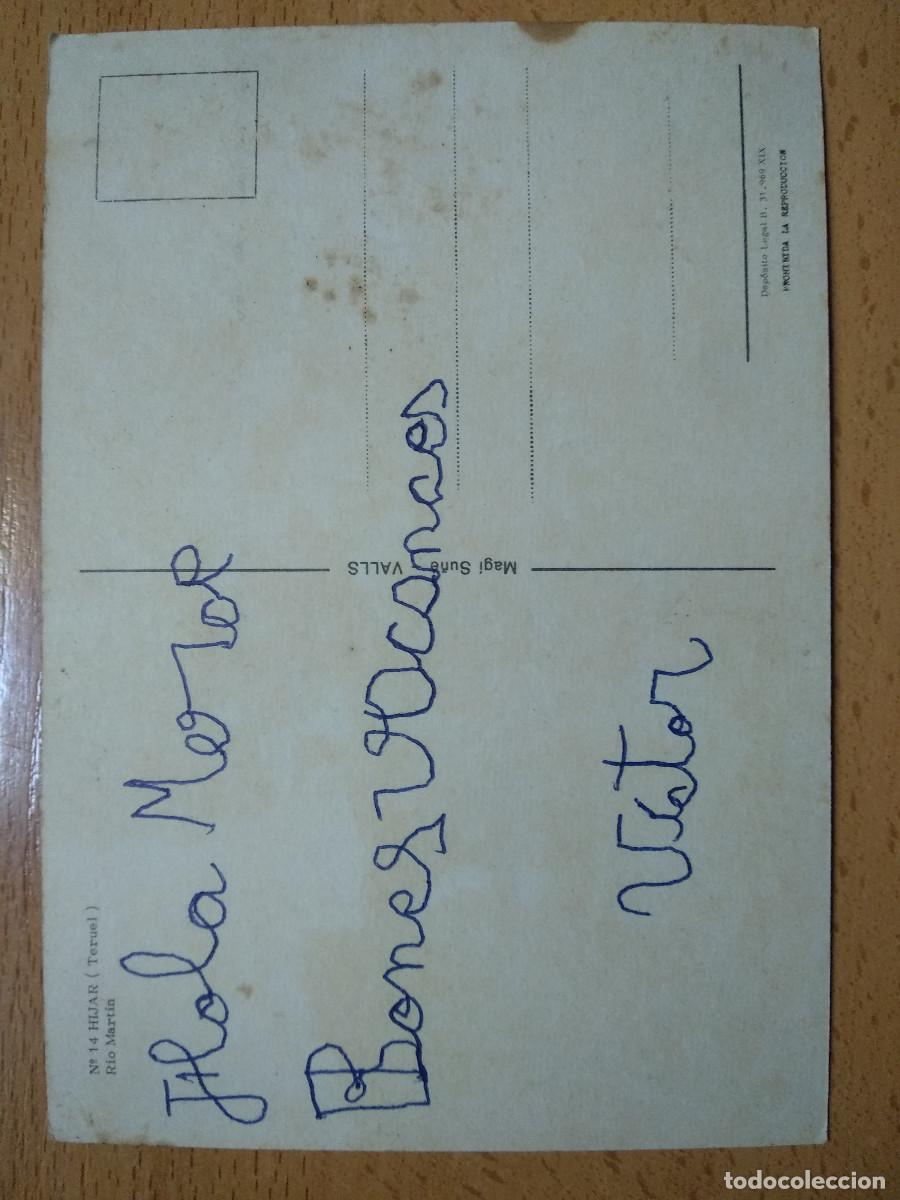 Nº 14 HIJAR ( Teruel )
Río Martín
Hola Merce
Bones Vacances
Víctor
Magí Suñé - VALLS
Depósito Legal B. 31.969 XIX
PROHIBIDA LA REPRODUCCION
todocoleccion